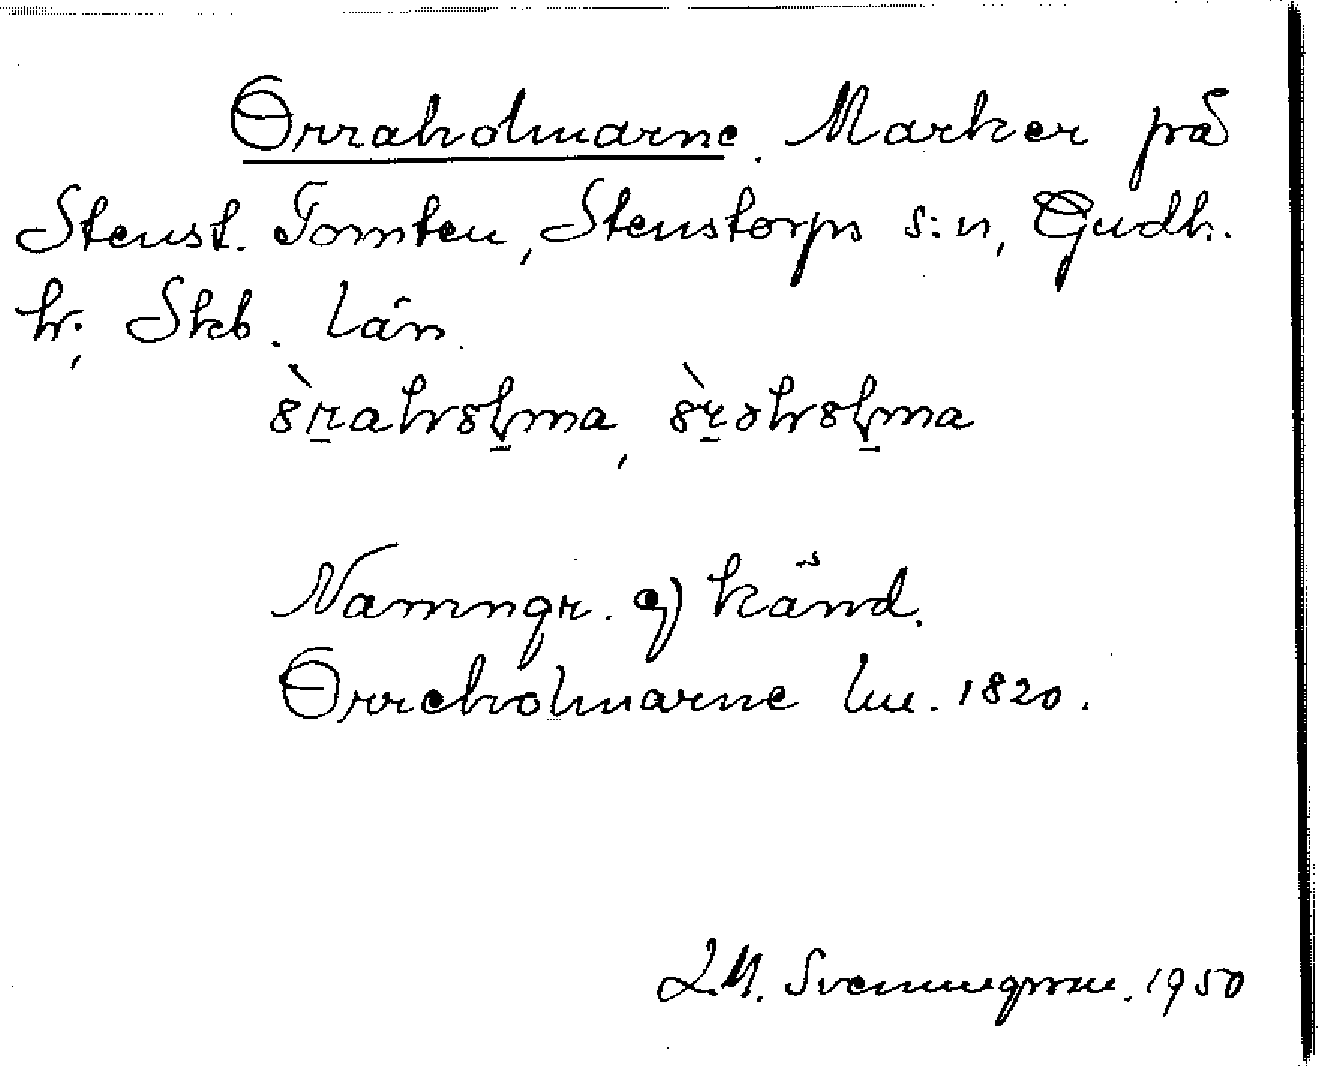 Orraholmarne. Marker på
Stenst. Tomten, Stenstorps s:n, Gudh.
hr., Skb. län.
ȣ̀r̲ahȣl̲ma, ȣ̀r̲əhȣl̲ma
Namngr. ej känd.
Orreholmarne lm. 1820.
L.M. Svenungsson. 1950